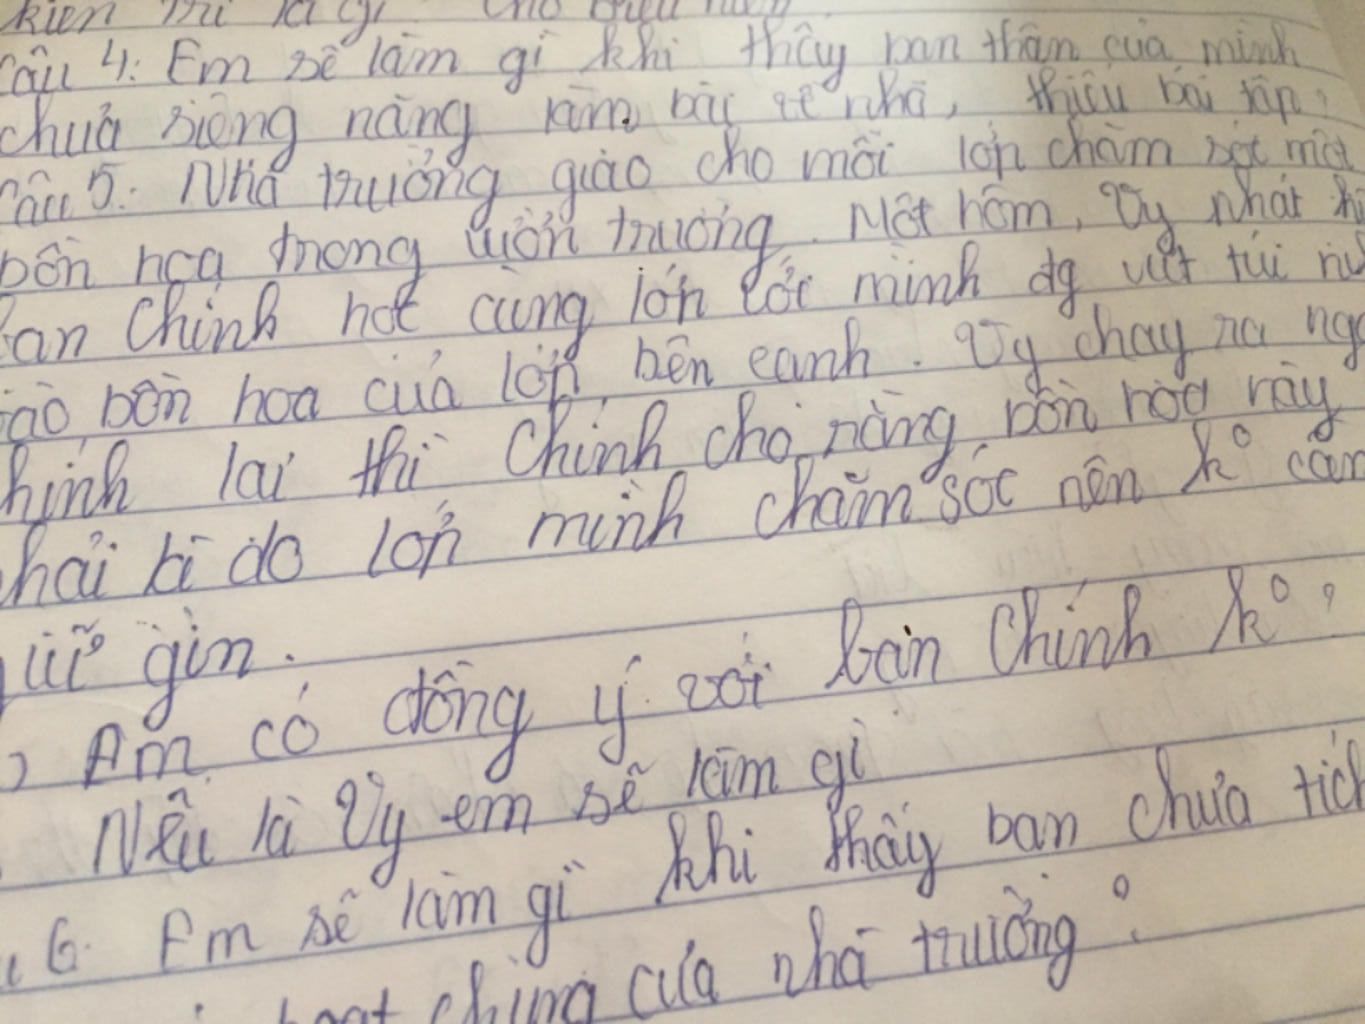 kiên trì là gì Cho biểu hiện
Câu 4: Em sẽ làm gì khi thấy bản thân của mình
chưa siêng năng làm bài về nhà, thiếu bài tập?
Câu 5: Nhà trường giao cho mỗi lớp chăm sóc một
bồn hoa trong vườn trường. Một hôm, Vy phát hi
bạn Chinh học cùng lớp với mình đg vứt túi ni
vào bồn hoa của lớp bên cạnh. Vy chạy ra ng
Chinh lại thì Chinh cho rằng bồn hoa này
phải bì do lớp mình chăm sóc nên k° cần
giữ gìn.
) Em có đồng ý với bạn Chinh k°?
Nếu là Vy em sẽ làm gì
6. Em sẽ làm gì khi thấy bạn chưa tích
hoạt chung của nhà trường?